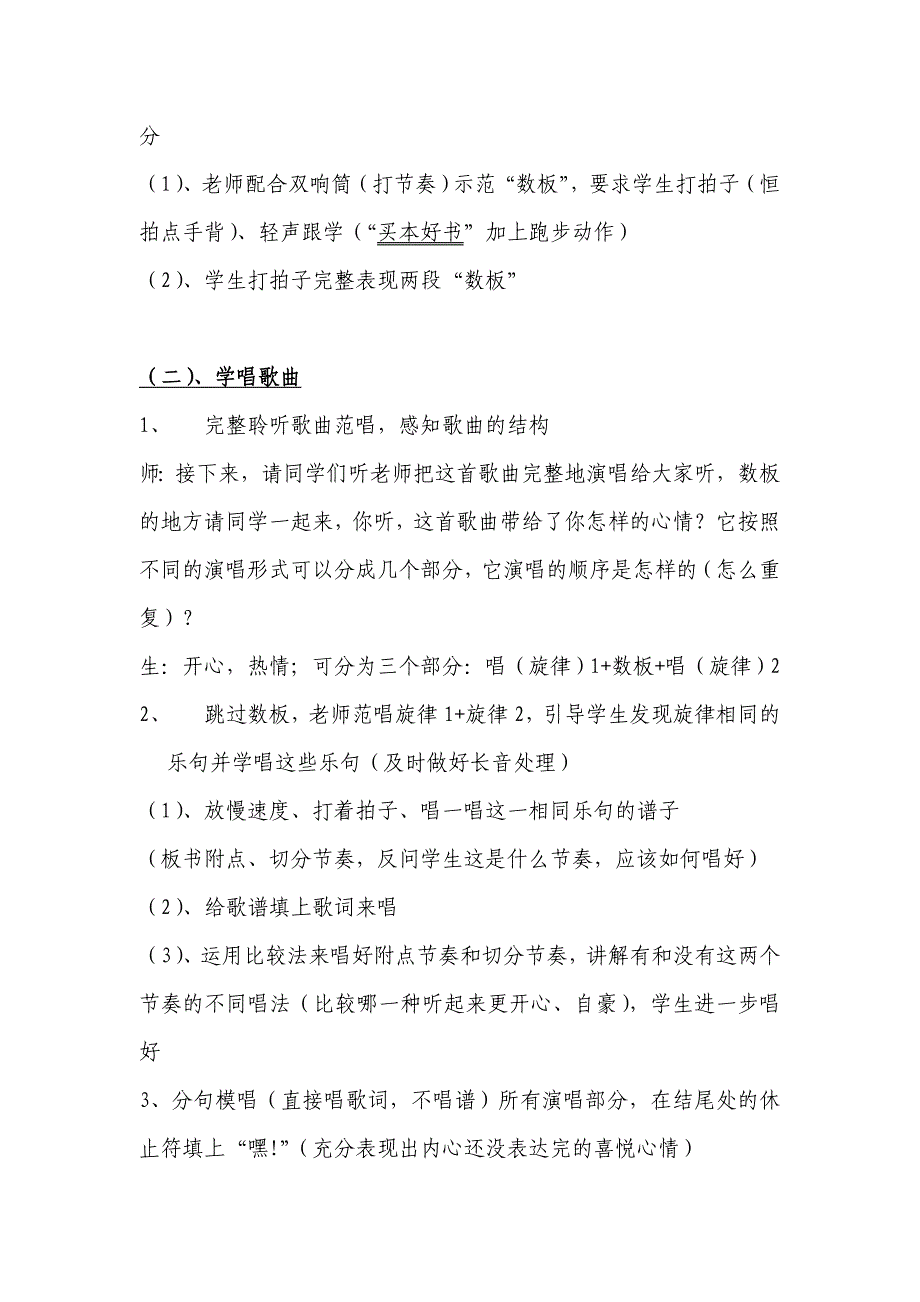 分
（1）、老师配合双响筒（打节奏）示范“数板”，要求学生打拍子（恒
拍点手背）、轻声跟学（“买本好书”加上跑步动作）
（2）、学生打拍子完整表现两段“数板”
（二）、学唱歌曲
1、 完整聆听歌曲范唱，感知歌曲的结构
师：接下来，请同学们听老师把这首歌曲完整地演唱给大家听，数板
的地方请同学一起来，你听，这首歌曲带给了你怎样的心情？它按照
不同的演唱形式可以分成几个部分，它演唱的顺序是怎样的（怎么重
复）？
生：开心，热情；可分为三个部分：唱（旋律）1+数板+唱（旋律）2
2、 跳过数板，老师范唱旋律1+旋律2，引导学生发现旋律相同的
乐句并学唱这些乐句（及时做好长音处理）
（1）、放慢速度、打着拍子、唱一唱这一相同乐句的谱子
（板书附点、切分节奏，反问学生这是什么节奏，应该如何唱好）
（2）、给歌谱填上歌词来唱
（3）、运用比较法来唱好附点节奏和切分节奏，讲解有和没有这两个
节奏的不同唱法（比较哪一种听起来更开心、自豪），学生进一步唱
好
3、分句模唱（直接唱歌词，不唱谱）所有演唱部分，在结尾处的休
止符填上“嘿！”（充分表现出内心还没表达完的喜悦心情）